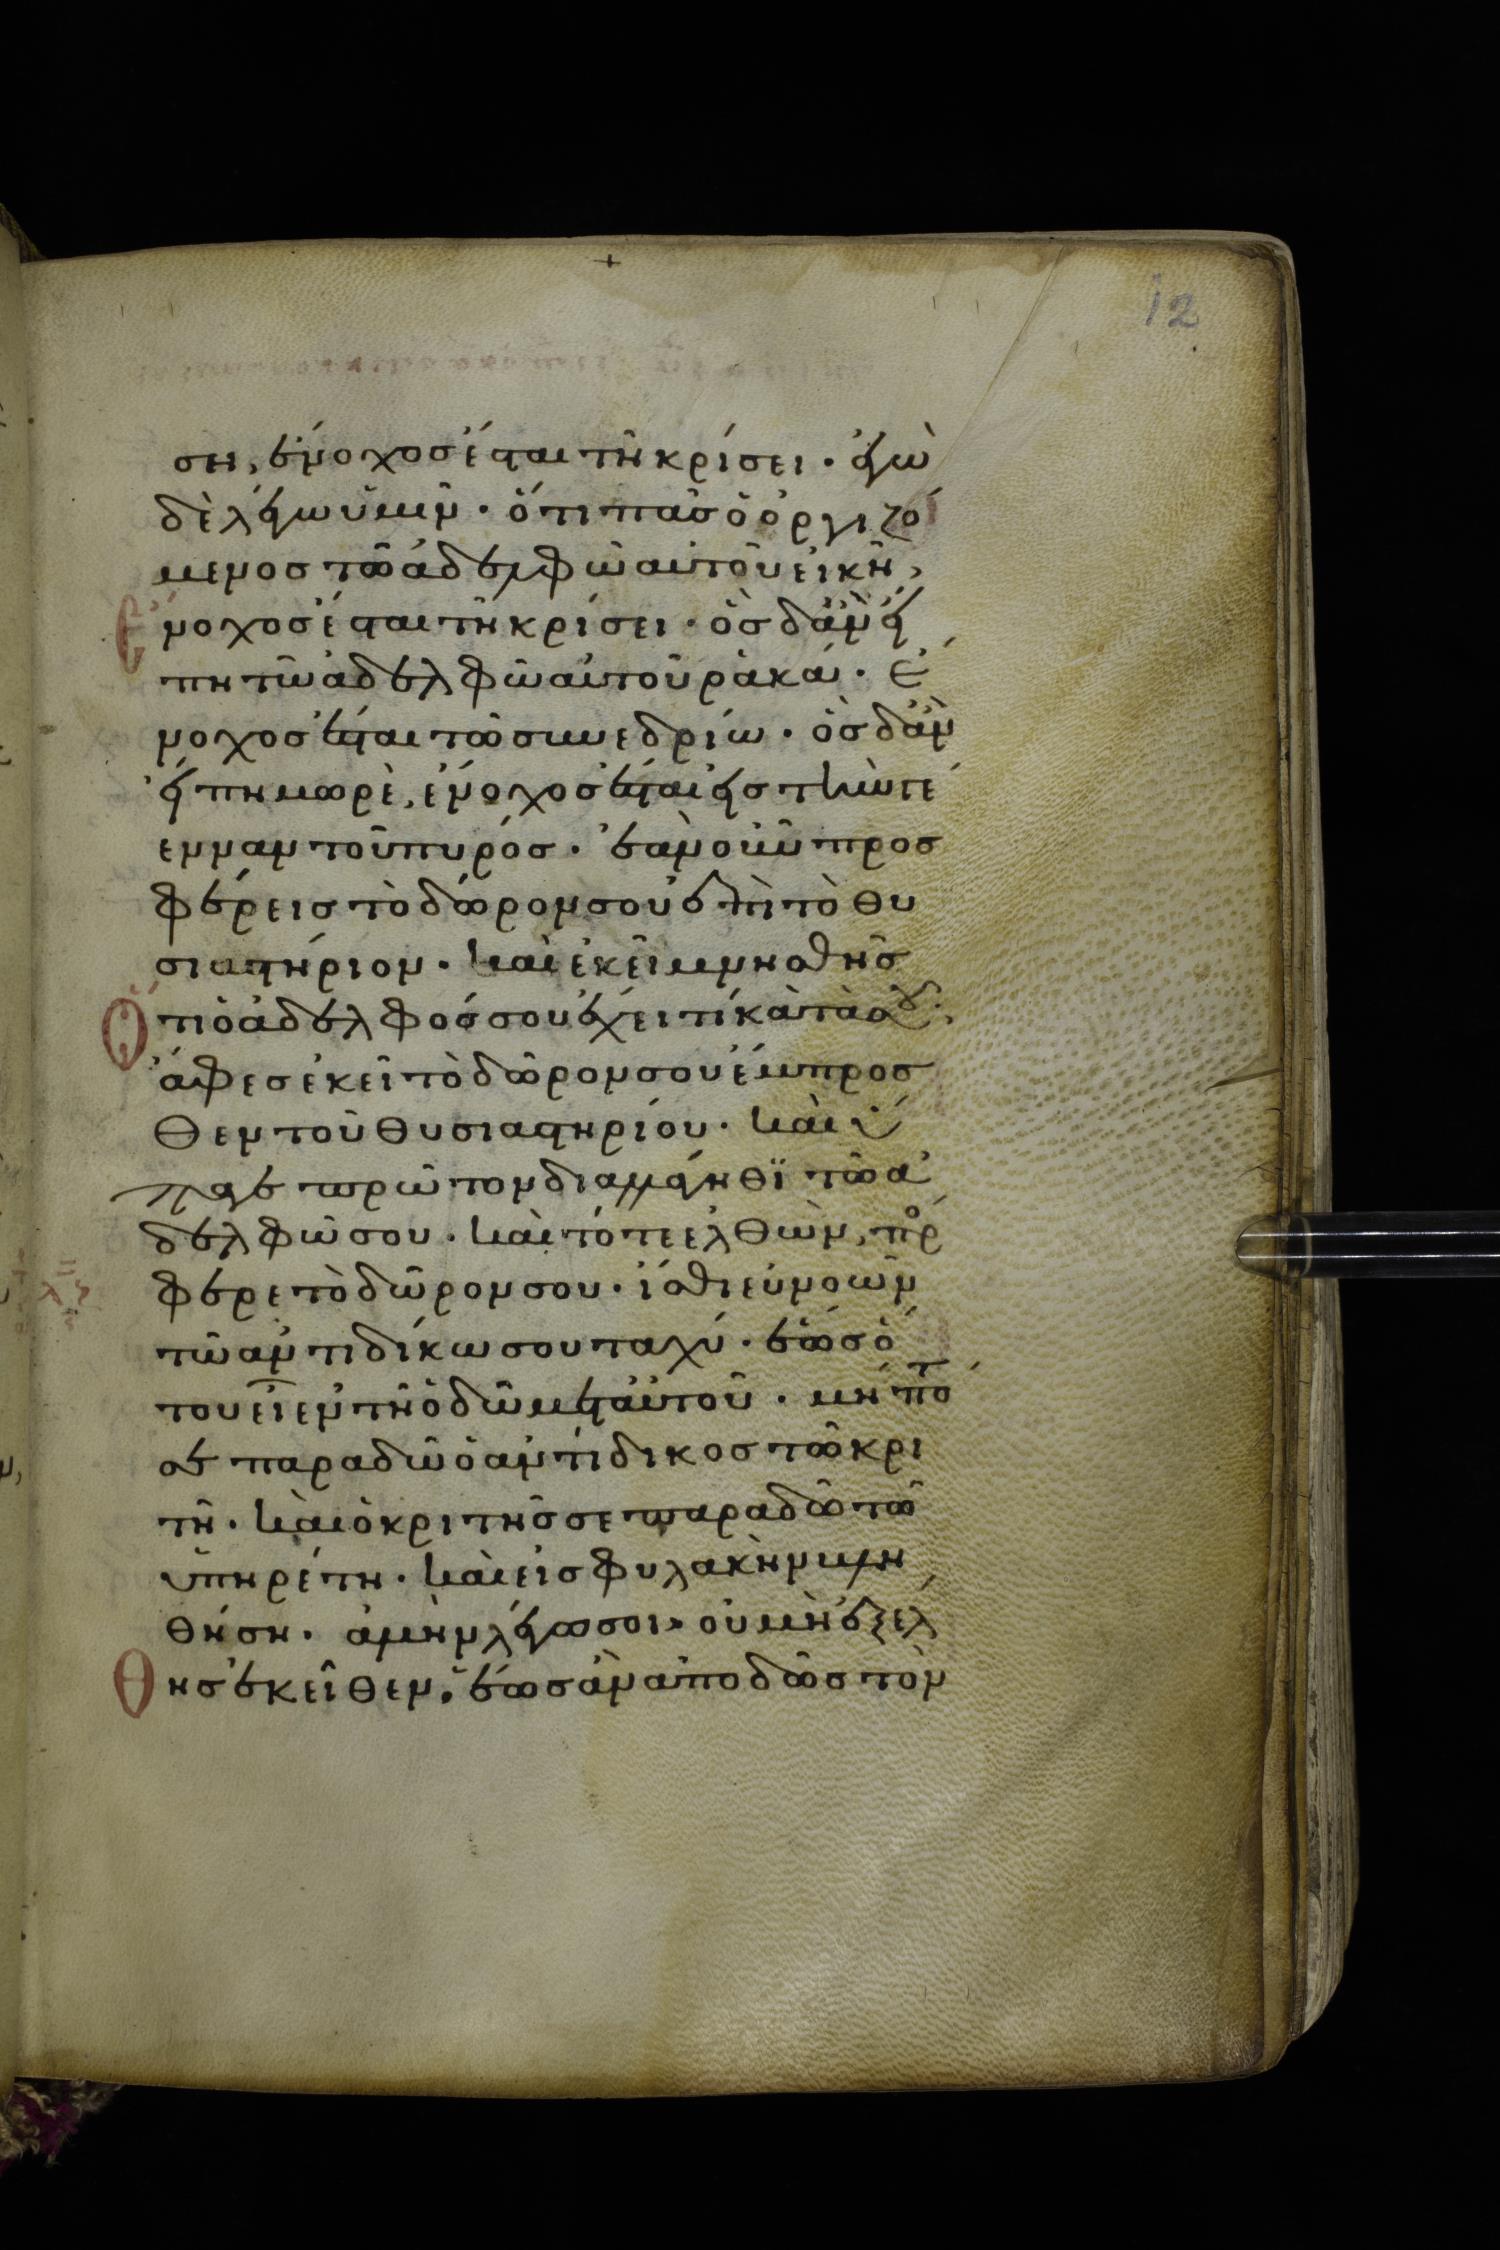 12
ση, ἔνοχος ἔσται τῆ κρίσει · ἐγὼ
δὲ λέγω ὑμῖν · ὅτι πᾶς ὁ ὀργιζό
μενος τῶ ἀδελφῶ αὐτοῦ εἰκῆ,
Ἔνοχος ἔσται τῆ κρίσει · ὃς δἂν εἴ
πη τῶ ἀδελφῶ αὐτοῦ ῥακά · ἔ
νοχος ἔσται τῶ συνεδρίω · ὃς δἂν
εἴπη μωρὲ, ἔνοχος ἔσται εἰς τὴν γέ
ενναν τοῦ πυρός · ἐὰν οὖν προσ
φέρεις τὸ δῶρον σου ἐπὶ τὸ θυ
σιαστήριον · καὶ ἐκεῖ μνησθῆς
Ὅτι ὁ ἀδελφός σου ἔχει τί κατὰ σοῦ ·
ἄφες ἐκεῖ τὸ δῶρον σου ἔμπροσ
θεν τοῦ θυσιαστηρίου · καὶ ὕ
παγε πρῶτον διαλλάγηθϊ τῶ ἀ
δελφῶ σου · καὶ τότε ἐλθὼν, πρό
φερε τὸ δῶρον σου · ἴσθι εὐνοῶν
τῶ ἀντιδίκω σου ταχύ · ἕως ὅ
του εἶ ἐν τῆ ὁδῶ μετ αὐτοῦ · μή ποτέ
σε παραδῶ ὁ ἀντίδικος τῶ κρι
τῆ · καὶ ὁ κριτῆς σε παραδῶ τῶ
ὑπηρέτη · καὶ εἰς φυλακὴν βλη
θήση · ἀμὴν λέγω σοι, οὐ μὴ ἐξέλ
Θης ἐκεῖθεν, ἕως ἂν ἀποδῶς τὸν